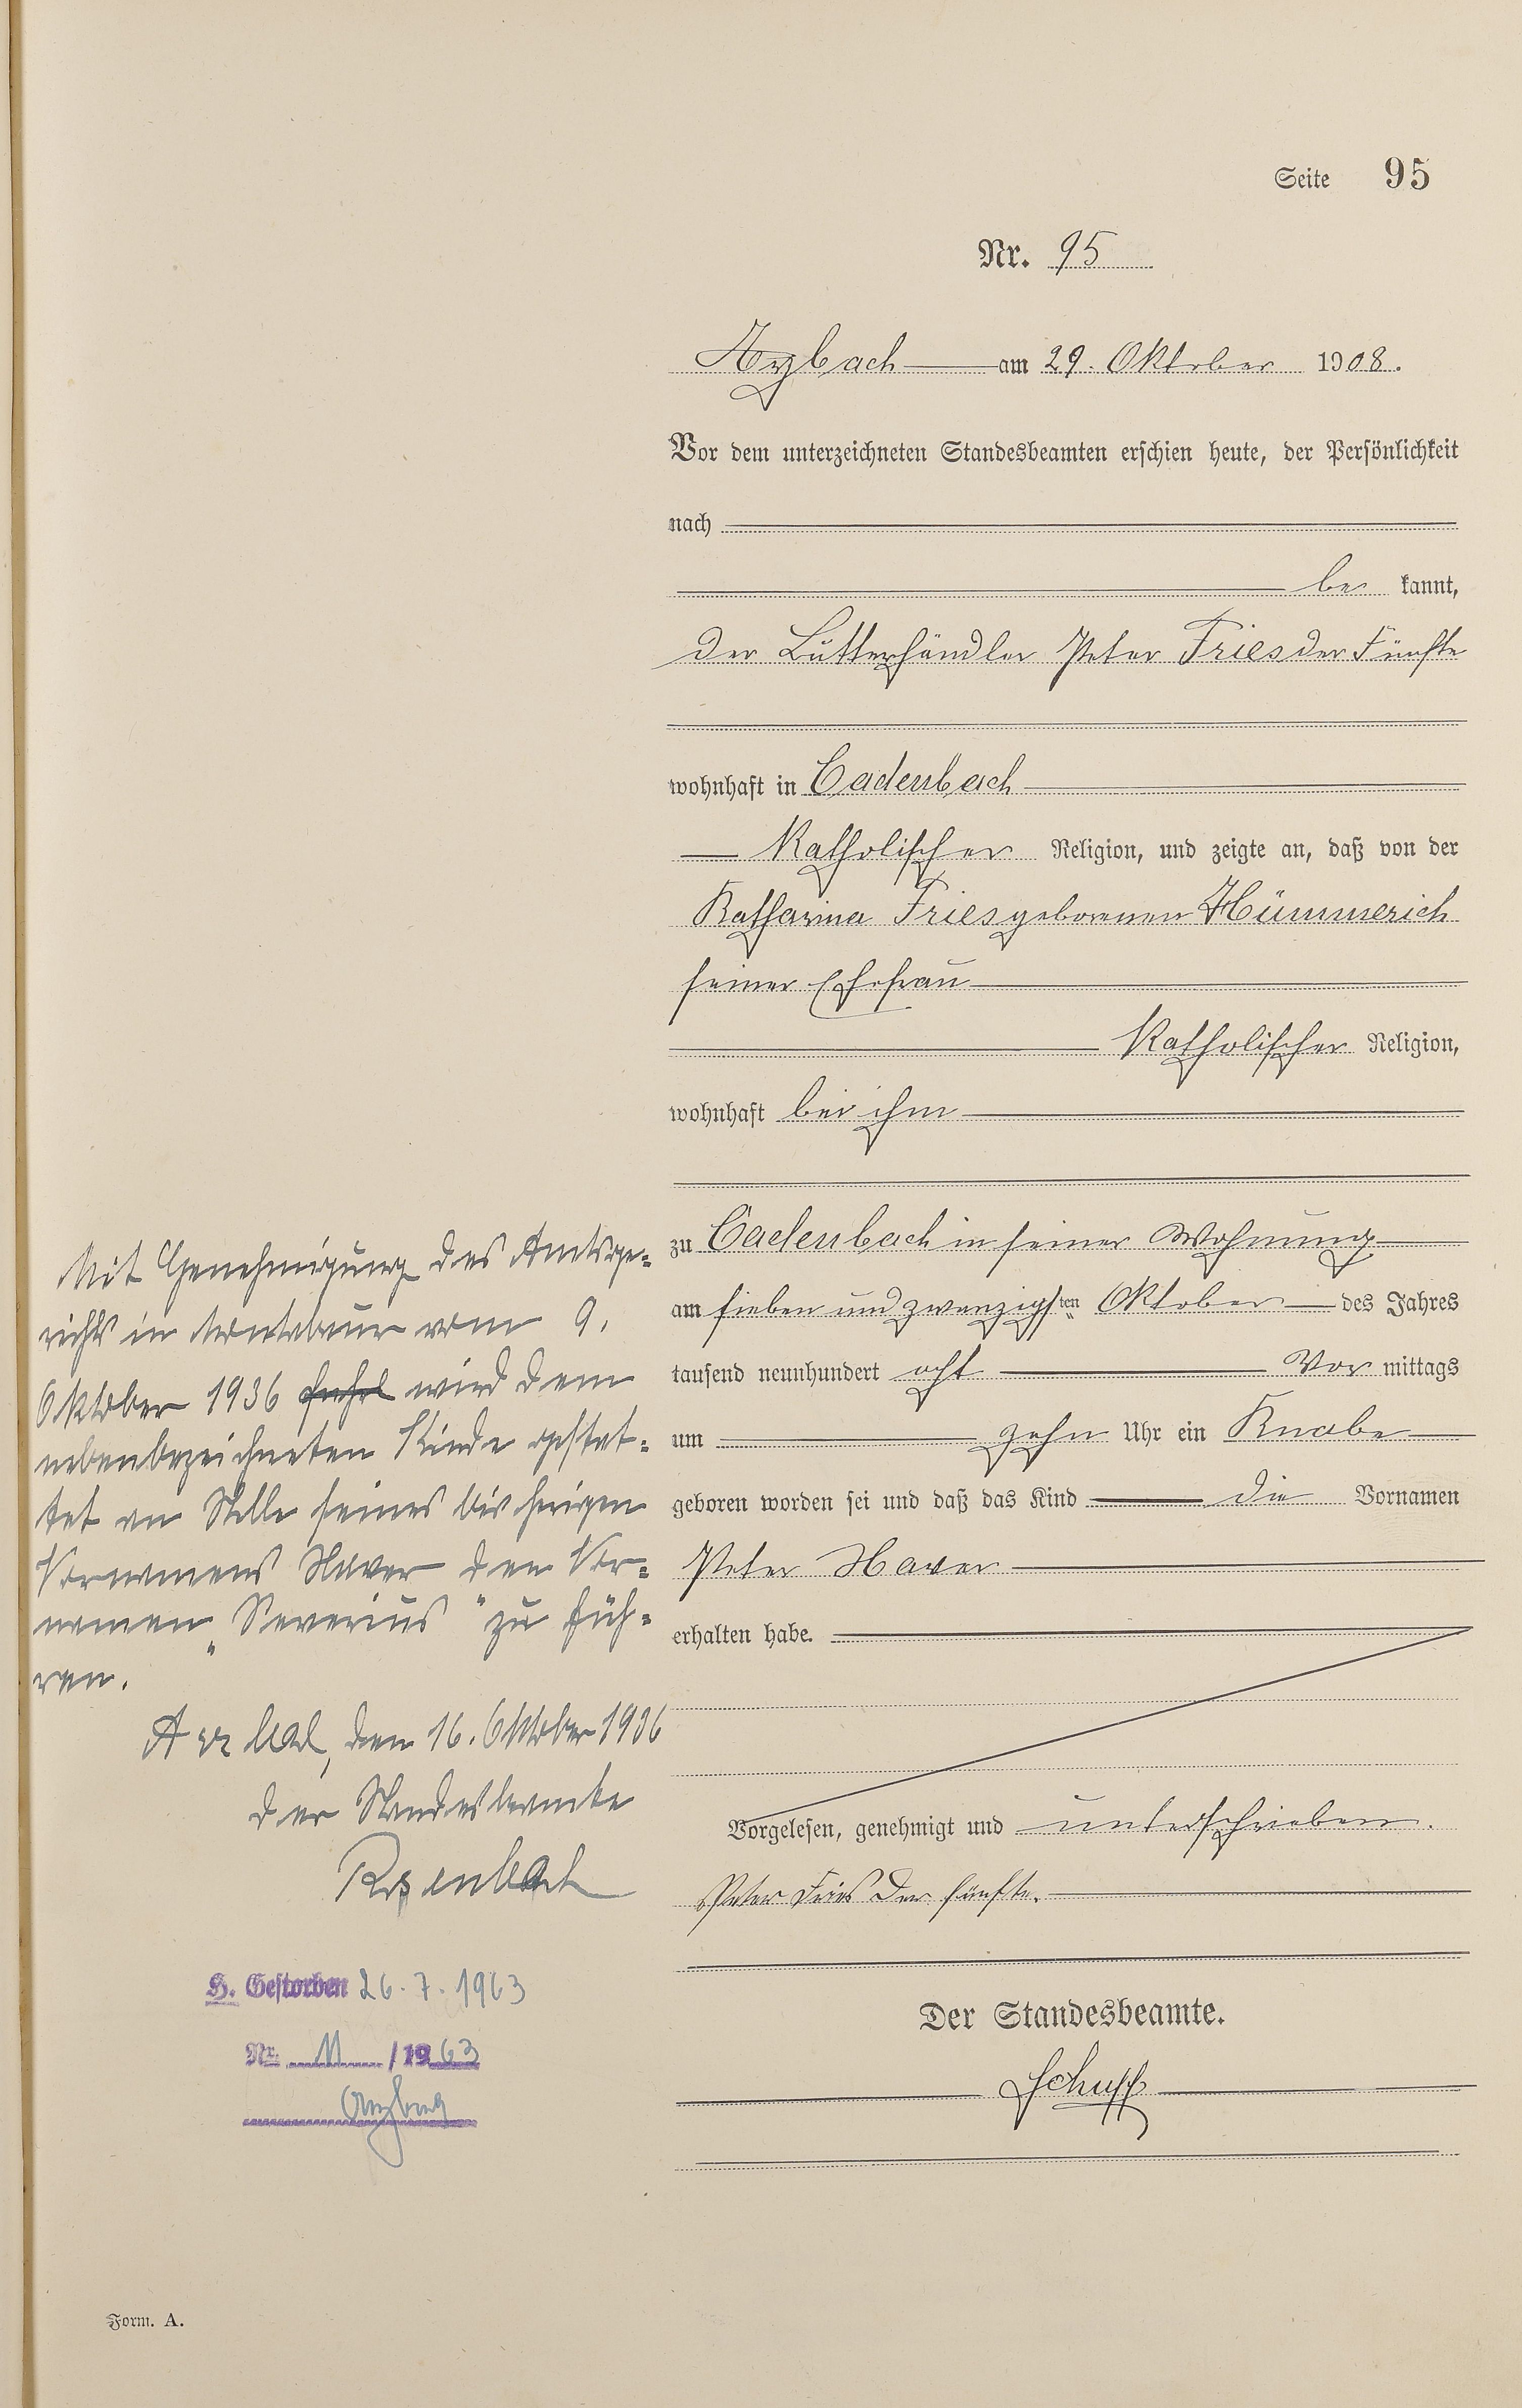 Seite 95
Nr. 95
Arzbach am 29. Oktober 1908.
Vor dem unterzeichneten Standesbeamten erschien heute, der Persönlichkeit
nach
be kannt,
der Butterhändler Peter Fries der Fünfte
wohnhaft in Cadenbach
Katholischer Religion, und zeigte an, daß von der
Katharina Fries geborenen Hümmerich
seiner Ehefrau
Katholischer Religion,
wohnhaft bei ihm
zu Cadenbach in seiner Wohnung
am sieben und zwanzigsten Oktober des Jahres
tausend neunhundert acht Vor mittags
um zehn Uhr ein Knabe
geboren worden sei und daß das Kind die Vornamen
Peter Xaver
erhalten habe.
Vorgelesen, genehmigt und unterschrieben.
Peter Fries der fünfte.
Der Standesbeamte.
Schupp
Mit Genehmigung des Amtsge-
richts in Montabaur vom 9.
Oktober 1936 wird dem
nebenbezeichneten Kinde gestat-
tet an Stelle seines bisherigen
Vornamens Xaver den Vor-
namen „Severius" zu füh-
ren.
Arzbach, den 16. Oktober 1936
der Standesbeamte
Rosenbach
H. Gestorben 26.7.1963
Nr. 11 /1963
Arzbach
Form. A.